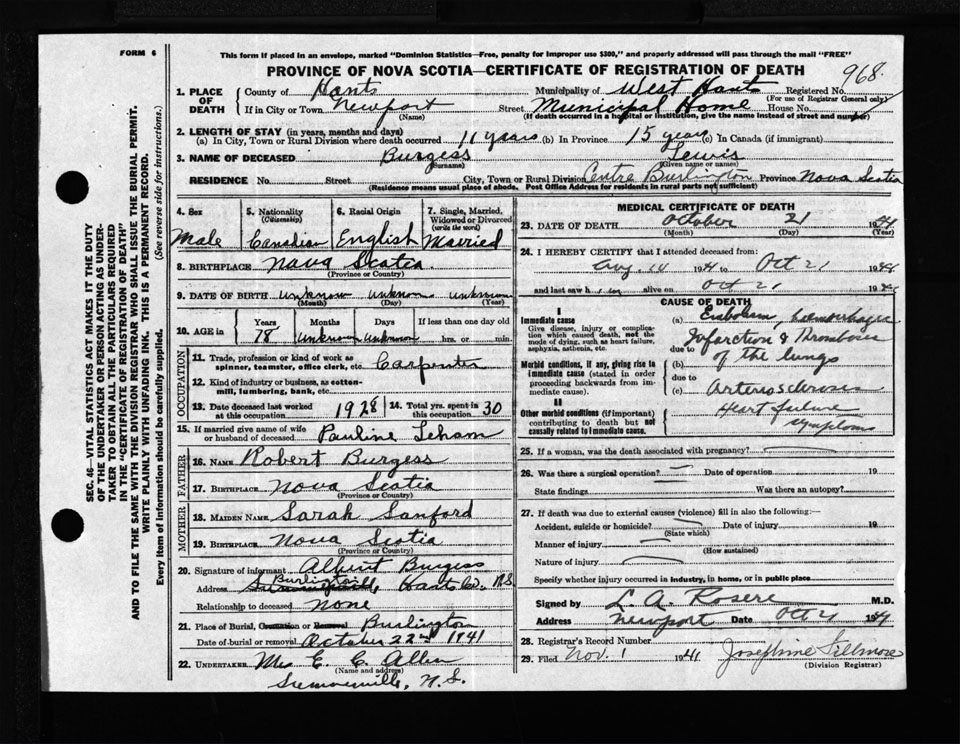 FORM 6
This form if placed in an envelope, marked "Dominion Statistics—Free, penalty for improper use $300," and properly addressed will pass through the mail "FREE"
PROVINCE OF NOVA SCOTIA—CERTIFICATE OF REGISTRATION OF DEATH
968
SEC. 46—VITAL STATISTICS ACT MAKES IT THE DUTY
OF THE UNDERTAKER OR PERSON ACTING AS UNDER-
TAKER TO OBTAIN ALL THE PARTICULARS REQUIRED
IN THE "CERTIFICATE OF REGISTRATION OF DEATH"
AND TO FILE THE SAME WITH THE DIVISION REGISTRAR WHO SHALL ISSUE THE BURIAL PERMIT.
WRITE PLAINLY WITH UNFADING INK. THIS IS A PERMANENT RECORD.
Every item of information should be carefully supplied. (See reverse side for instructions.)
1. PLACE OF DEATH
County of Hants Municipality of West Hants Registered No.
(For use of Registrar General only)
If in City or Town Newport Street Municipal Home House No.
(Name) (If death occurred in a hospital or institution, give the name instead of street and number)
2. LENGTH OF STAY (in years, months and days)
(a) In City, Town or Rural Division where death occurred 11 years (b) In Province 15 years (c) In Canada (if immigrant)
3. NAME OF DECEASED Burgess Lewis
(Surname) (Given name or names)
RESIDENCE No. Street City, Town or Rural Division Centre Burlington Province Nova Scotia
(Residence means usual place of abode. Post Office Address for residents in rural parts not sufficient)
4. Sex Male
5. Nationality (Citizenship) Canadian
6. Racial Origin English
7. Single, Married, Widowed or Divorced (write the word) Married
8. BIRTHPLACE Nova Scotia
(Province or Country)
9. DATE OF BIRTH unknown unknown unknown
(Month) (Day) (Year)
10. AGE in Years 78 Months unknown Days unknown If less than one day old hrs. or min.
OCCUPATION
11. Trade, profession or kind of work as spinner, teamster, office clerk, etc. Carpenter
12. Kind of industry or business, as cotton-mill, lumbering, bank, etc.
13. Date deceased last worked at this occupation 1928
14. Total yrs. spent in this occupation 30
15. If married give name of wife or husband of deceased Pauline
FATHER
16. NAME Robert Burgess
17. BIRTHPLACE Nova Scotia
(Province or Country)
MOTHER
18. MAIDEN NAME Sarah Sanford
19. BIRTHPLACE Nova Scotia
(Province or Country)
20. Signature of informant Albert Burgess
Address Burlington Hants Co. N.S.
Relationship to deceased None
21. Place of Burial, Cremation or Removal Burlington
Date of burial or removal October 22nd 1941
22. UNDERTAKER Mrs E. C. Allen
(Name and address)
N.S.
MEDICAL CERTIFICATE OF DEATH
23. DATE OF DEATH October 21 1941
(Month) (Day) (Year)
24. I HEREBY CERTIFY that I attended deceased from:
Aug. 14 1941 to Oct 21 1941
and last saw him alive on Oct 21 1941
CAUSE OF DEATH
I
Immediate cause
Give disease, injury or complication which caused death, not the mode of dying, such as heart failure, asphyxia, asthenia, etc.
(a) Embolism hemorrhagic
Infarction & Thrombosis
due to of the lungs
Morbid conditions, if any, giving rise to immediate cause (stated in order proceeding backwards from immediate cause).
(b)
due to
(c) Arteriosclerosis
II
Other morbid conditions (if important) contributing to death but not causally related to immediate cause.
Heart failure
symptoms
25. If a woman, was the death associated with pregnancy?
26. Was there a surgical operation? Date of operation 19
State findings Was there an autopsy?
27. If death was due to external causes (violence) fill in also the following:—
Accident, suicide or homicide? Date of injury 19
(State which)
Manner of injury
(How sustained)
Nature of injury
Specify whether injury occurred in industry, in home, or in public place
Signed by L. A. Rosere M.D.
Address Newport Date Oct 21 1941
28. Registrar's Record Number
29. Filed Nov. 1 1941 Josephine Fillmore
(Division Registrar)